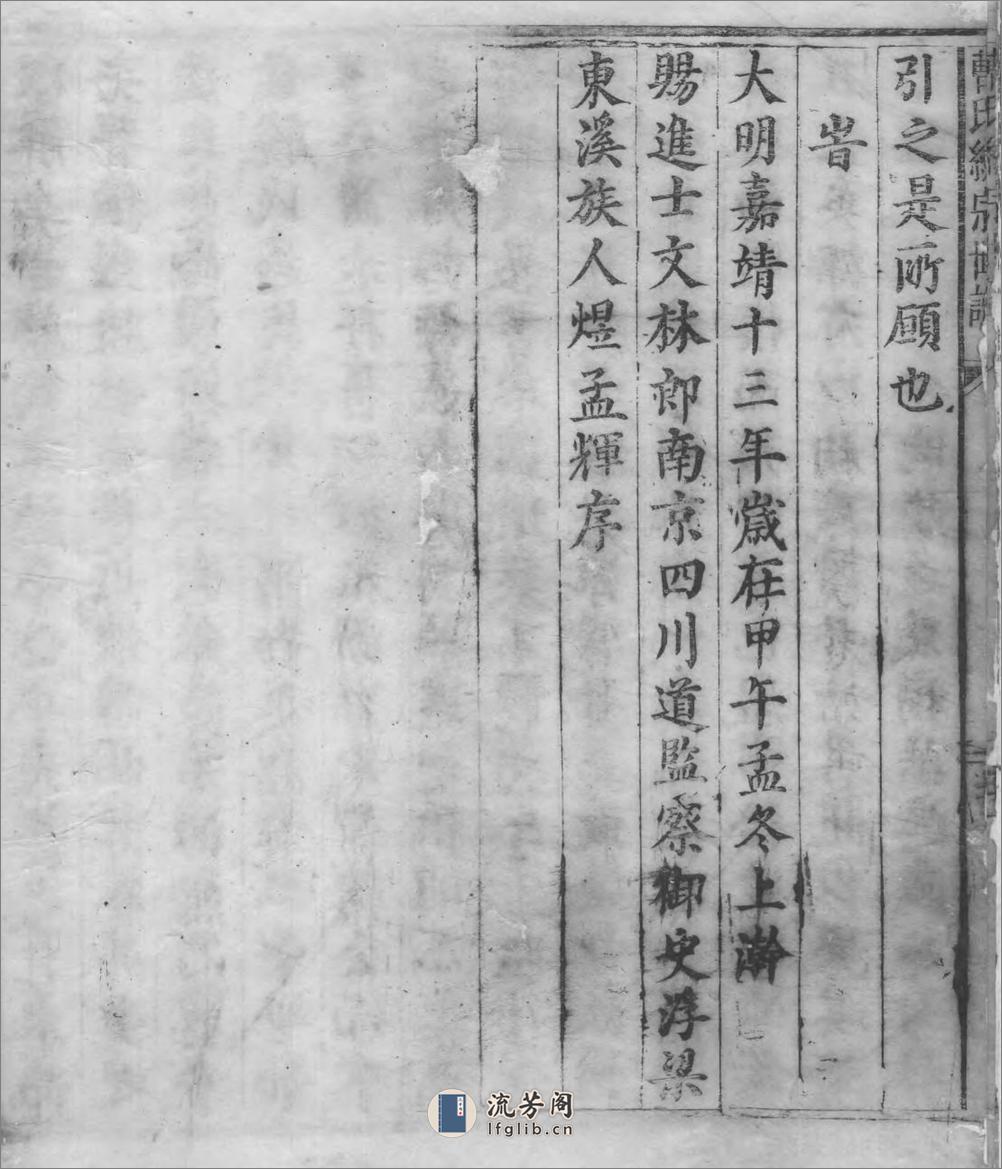 引之是所願也
旹
大明嘉靖十三年歲在甲午孟冬上澣
賜進士文林郎南京四川道監察御史浮梁
東溪族人煜孟輝序
流芳阁
lfglib.cn